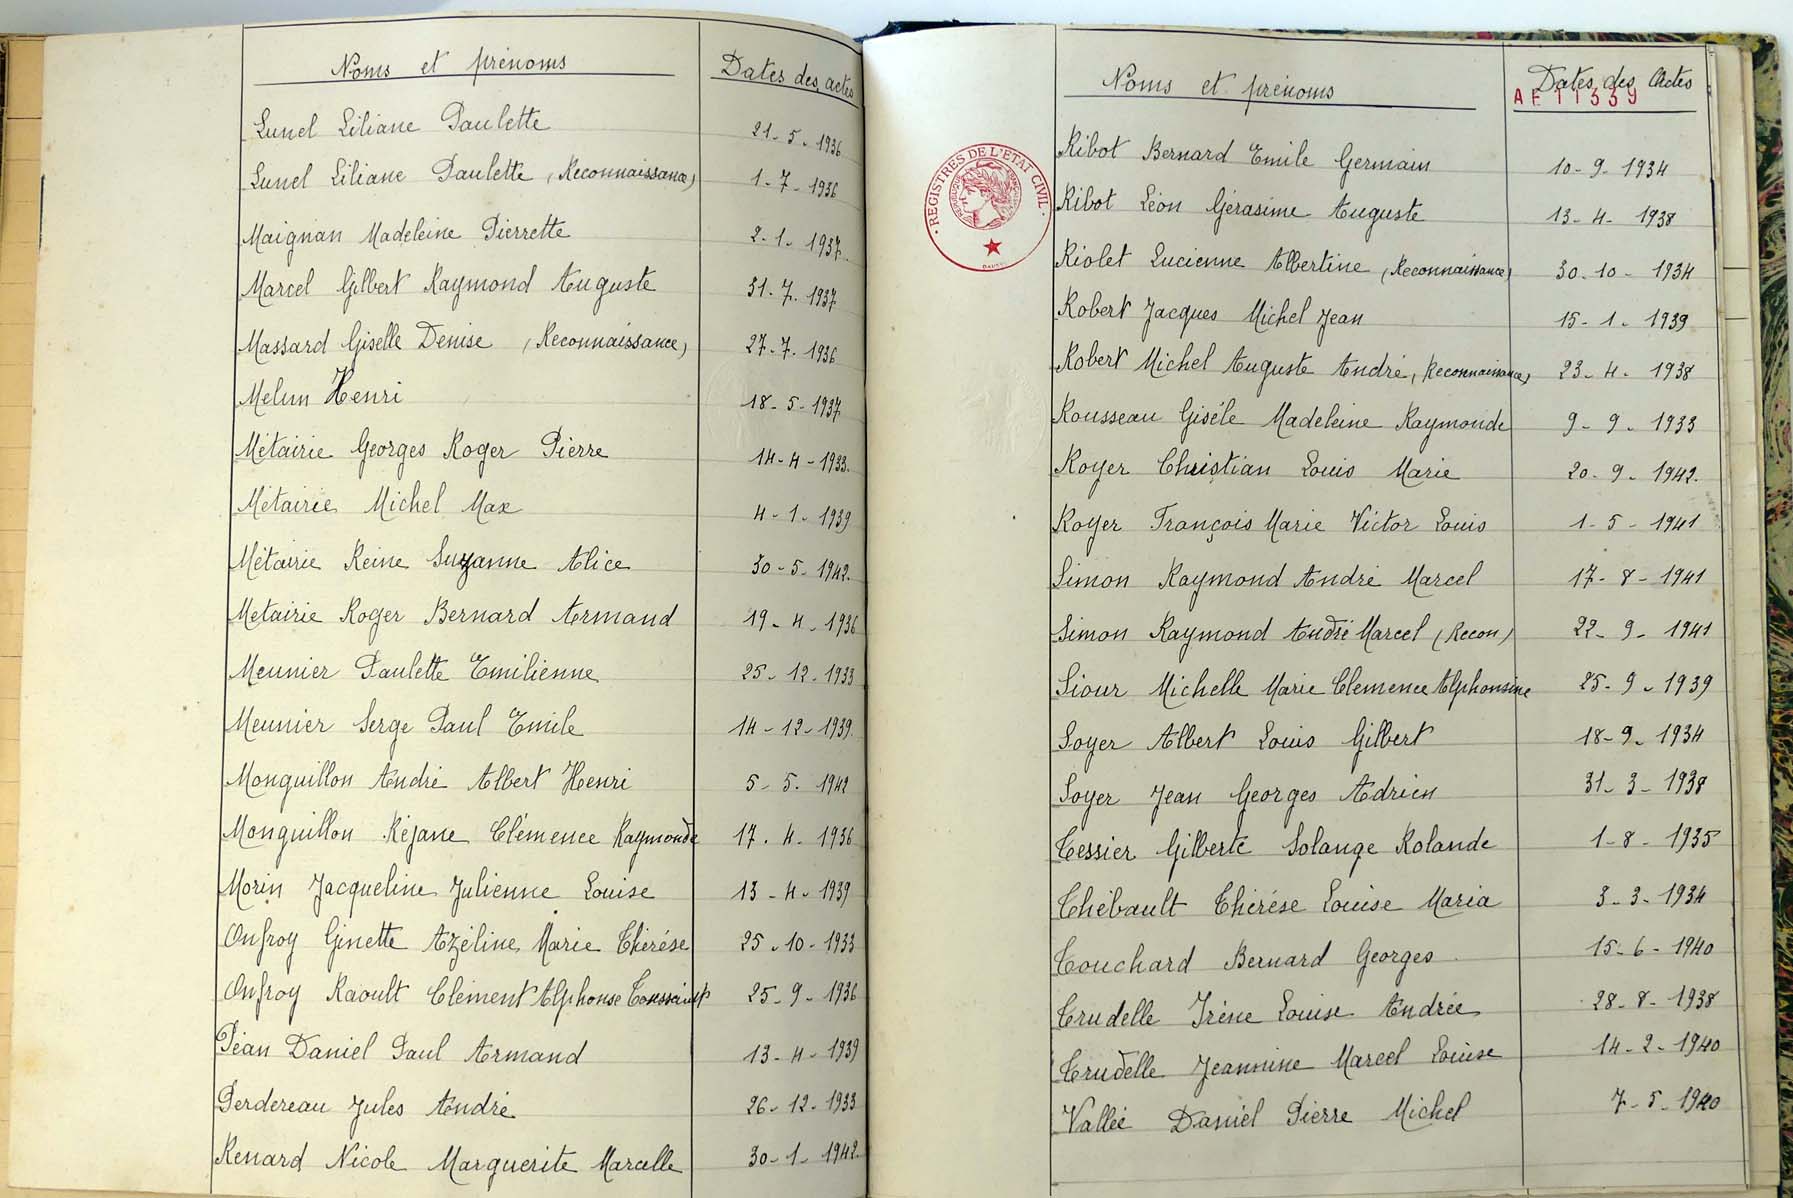 Noms et prénoms Dates des actes
Lunel Liliane Paulette 21-5-1936
Lunel Liliane Paulette (Reconnaissance) 1-7-1936
Maignan Madeleine Pierrette 2-1-1937
Marcel Gilbert Raymond Auguste 31-7-1937
Massard Giselle Denise (Reconnaissance) 27-7-1936
Melun Henri 18-5-1937
Métairie Georges Roger Pierre 14-4-1933.
Métairie Michel Max 4-1-1939
Métairie Reine Suzanne Alice 30-5-1942.
Metairie Roger Bernard Armand 19-4-1936
Meunier Paulette Emilienne 25-12-1933
Meunier Serge Paul Emile 14-12-1939.
Monguillon André Albert Henri 5-5-1942
Monguillon Réjane Clémence Raymonde 17.4.1936
Morin Jacqueline Julienne Louise 13-4-1939
Onfroy Ginette Azéline Marie Thérèse 25-10-1933
Onfroy Raoult Clément Alphonse Toussaint 25-9-1936
Péan Daniel Paul Armand 13-4-1939
Perdereau Jules André 26-12-1933
Renard Nicole Marguerite Marcelle 30-1-1942
Noms et prénoms Dates des Actes
AF11339
REGISTRES DE L'ETAT CIVIL
Ribot Bernard Emile Germain 10-9-1934
Ribot Léon Gérasime Auguste 13-4-1938
Riolet Lucienne Albertine (Reconnaissance) 30-10-1934
Robert Jacques Michel Jean 15-1-1939
Robert Michel Auguste André (Reconnaissance) 23-4-1938
Rousseau Gisèle Madeleine Raymonde 9-9-1933
Royer Christian Louis Marie 20-9-1942.
Royer François Marie Victor Louis 1-5-1941
Simon Raymond André Marcel 17-8-1941
Simon Raymond André Marcel (Recon) 22-9-1941
Siour Michelle Marie Clemence Alphonsine 25-9-1939
Soyer Albert Louis Gilbert 18-9-1934
Soyer Jean Georges Adrien 31-3-1938
Tessier Gilberte Solange Rolande 1-8-1935
Thébault Thérèse Louise Maria 3-3-1934
Touchard Bernard Georges 15-6-1940
Trudelle Irène Louise Andrée 28-8-1938
Trudelle Jeannine Marcel Louise 14-2-1940
Vallée Daniel Pierre Michel 7-5-1940